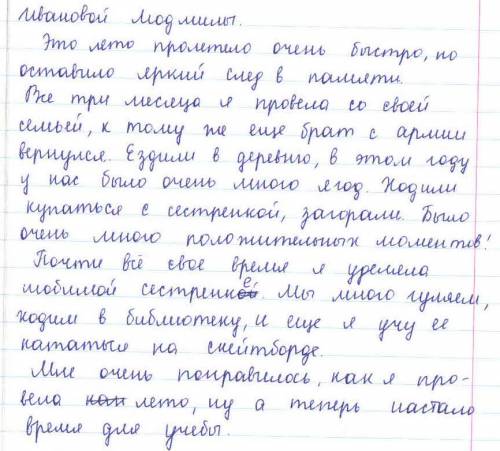 Ивановой Людмилы.
Это лето пролетело очень быстро, но
оставило яркий след в памяти.
Все три месяца я провела со своей
семьей, к тому же еще брат с армии
вернулся. Ездили в деревню, в этом году
у нас было очень много ягод. Ходили
купаться с сестренкой, загорали. Было
очень много положительных моментов!
Почти всё свое время я уделяла
любимой сестренке. Мы много гуляем,
ходим в библиотеку, и еще я учу ее
кататься на скейтборде.
Мне очень понравилось, как я про-
вела как лето, ну а теперь настало
время для учебы.